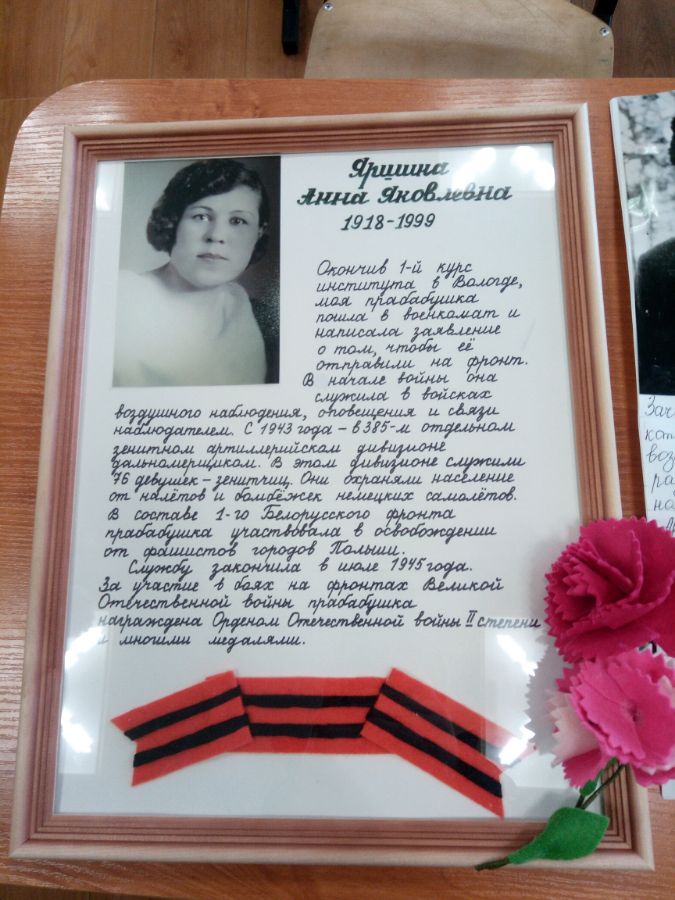 Яршина
Анна Яковлевна
1918-1999
Окончив 1-й курс
института в Вологде,
моя прабабушка
пошла в военкомат и
написала заявление
о том, чтобы её
отправили на фронт.
В начале войны она
служила в войсках
воздушного наблюдения, оповещения и связи
наблюдателем. С 1943 года – в 385-м отдельном
зенитном артиллерийском дивизионе
дальномерщиком. В этом дивизионе служили
76 девушек – зенитчиц. Они охраняли население
от налётов и бомбёжек немецких самолётов.
В составе 1-го Белорусского фронта
прабабушка участвовала в освобождении
от фашистов городов Польши.
Службу закончила в июле 1945 года.
За участие в боях на фронтах Великой
Отечественной войны прабабушка
награждена Орденом Отечественной войны II степени
и многими медалями.